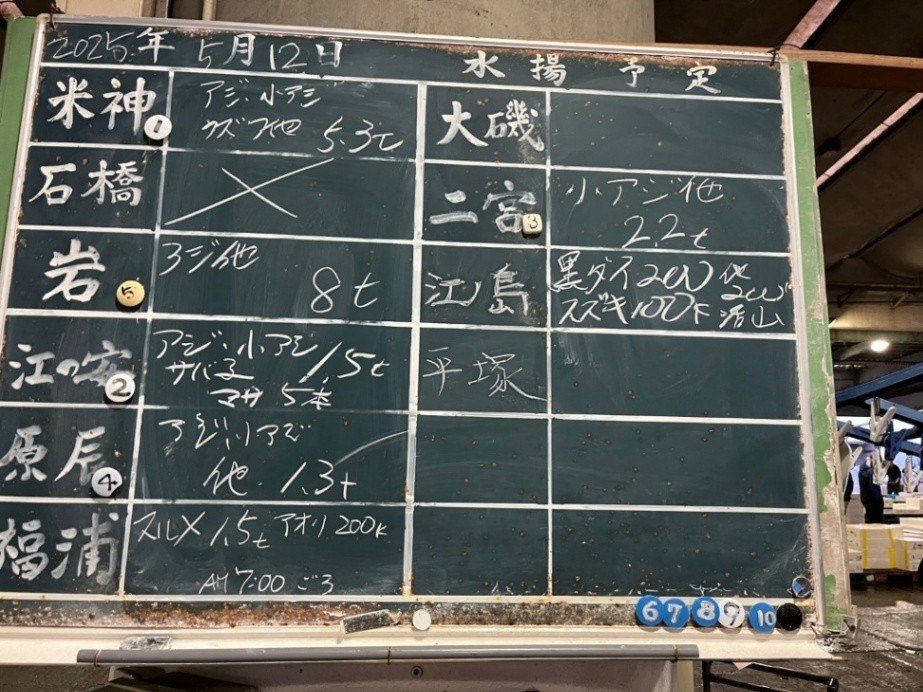 2025年 5月12日 水揚予定
米神 1
アジ、小アジ
ウズワ他 5.3t
石橋
岩 5
アジ他
8t
江の安 2
アジ、小アジ 1.5t
サバ子
マサ 5本
原辰 4
アジ、小アジ
他 1.3t
福浦
スルメ 1.5t アオリ 200K
AM 7:00 ごろ
大磯
二宮 3
小アジ他
2.2t
江ノ島
黒ダイ200 他
スズキ100K
平塚
6 7 8 9 10